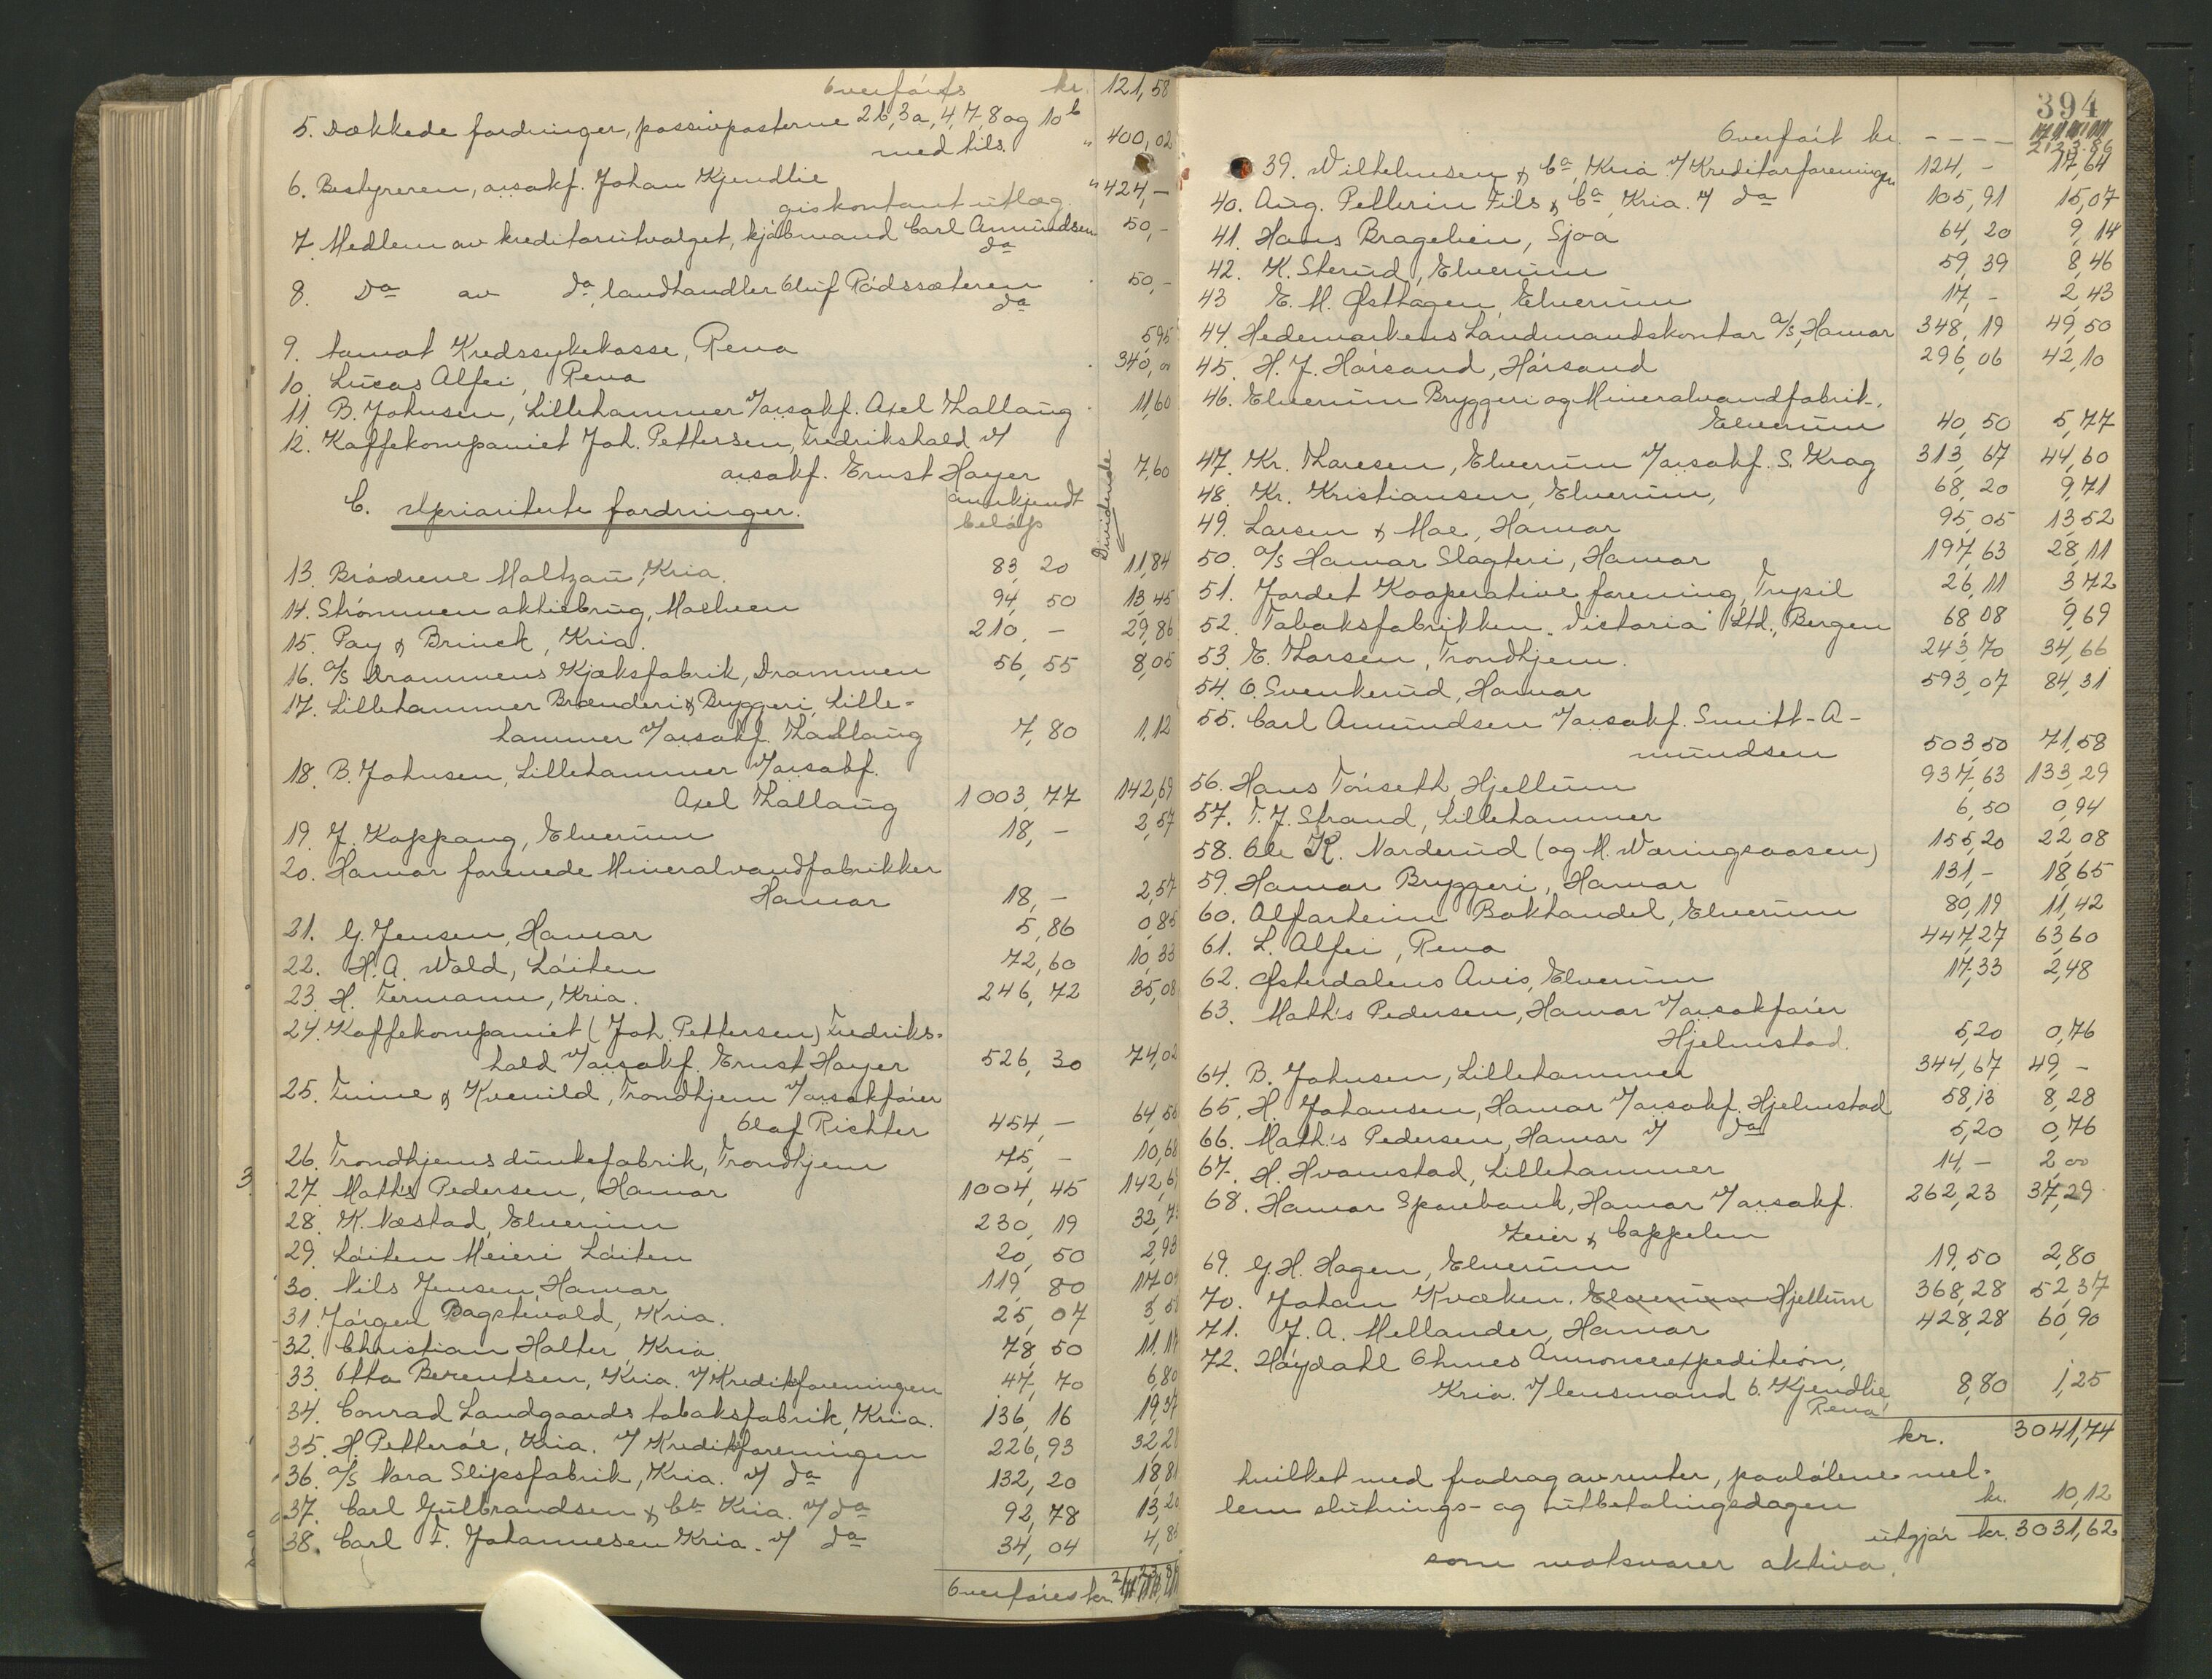 Overføres kr. 121,58
5. Dækkede fordringer, passivposterne 2b, 3a, 4, 7, 8 og 10b
med tils. " 400,02
6. Bestyreren, o.r.sakf. Johan Kjendlie " 424,-
godskontant utlæg
7. Medlem av kreditorutvalget, kjøbmand Carl Amundsen 50,-
do
8. Do av do, landhandler Oluf Rødssæteren 50,-
do
9. Aamot Kredssykekasse, Rena 595
10. Lucas Alfei, Rena 340,00
11. B. Johnsen, Lillehammer v/o.r.sakf. Axel Thallaug 11,60
12. Kaffekompaniet Joh. Pettersen, Fredrikshald v/
o.r.sakf. Ernst Hayer 7,60
C. Uprioriterte fordringer. anerkjendt beløp Dividende
13. Brødrene Maltzau, Kria. 83,20 11,84
14. Strømmen aktiebrug, Maelven 94,50 13,45
15. Pay & Brinck, Kria. 210,- 29,86
16. a/s Drammens Kjæksfabrik, Drammen 56,55 8,05
17. Lillehammer Brænderi & Bryggeri, Lille-
hammer v/o.r.sakf. Thallaug 7,80 1,12
18. B. Johnsen, Lillehammer v/o.r.sakf.
Axel Thallaug 1003,77 142,69
19. J. Koppang, Elverum 18,- 2,57
20. Hamar forenede Mineralvandfabrikker
Hamar 18,- 2,57
21. G. Jensen, Hamar 5,86 0,85
22. H. A. Wold, Løiten 72,60 10,33
23. H. Fermann, Kria. 246,72 35,08
24. Kaffekompaniet (Joh. Pettersen) Fredriks-
hald v/o.r.sakf. Ernst Hayer 526,30 74,02
25. Finne & Kvenild, Trondhjem v/o.r.sakfører
Olaf Richter 454,- 64,56
26. Trondhjems dunkefabrik, Trondhjem 75,- 10,68
3. 27. Math's Pedersen, Hamar 1004,45 142,6
28. K. Næstad, Elverum 230,19 32,7
29. Løiten Meieri Løiten 20,50 2,93
30. Nils Jensen, Hamar 119,80 17,0
31. Jørgen Bagstevold, Kria. 25,07 3,5
32. Christian Holter, Kria. 78,50 11,17
33. Otto Berentsen, Kria. v/Kreditforeningen 47,70 6,80
34. Conrad Landgaards tobaksfabrik, Kria. 136,16 19,37
35. H. Petterøe, Kria. v/ Kreditforeningen 226,93 32,2
36. a/s Nora Slipsfabrik, Kria. v/ do 132,20 18,81
37. Carl Gulbrandsen & Co Kria. v/ do 92,78 13,20
38. Carl F. Johannesen Kria. v/ do 34,04 4,8
Overføres kr. 2123,86
394
Overført kr. - - - - 2123,86
39. Wilhelmsen & Co, Kria v/ Kreditorforeningen 124,- 17,64
40. Aug. Pellerin Fils & Co, Kria. v/ do 105,91 15,07
41. Hans Bragelien, Sjoa 64,20 9,14
42. K. Sterud, Elverum 59,39 8,46
43 E. M. Østhagen, Elverum 17,- 2,43
44. Hedemarkens Landmandskontor a/s, Hamar 348,19 49,50
45. H. J. Hørsand, Hørsand 296,06 42,10
46. Elverum Bryggeri og Mineralvandfabrik,
Elverum 40,50 5,77
47. Kr. Thoresen, Elverum v/o.r.sakf. S. Krag 313,67 44,60
48. Kr. Kristiansen, Elverum, 68,20 9,71
49. Larsen & Moe, Hamar 95,05 13,52
50. a/s Hamar Slagteri, Hamar 197,63 28,11
51. Jordet Kooperative forening, Trysil 26,11 3,72
52. Tobaksfabrikken "Victoria" Ltd., Bergen 68,08 9,69
53. E. Thorsen, Trondhjem. 243,70 34,66
54. O. Svenkerud, Hamar 593,07 84,31
55. Carl Amundsen v/o.r.sakf. Smitt-A-
mundsen 503,50 71,58
56. Hans Tønseth, Hjellum 937,63 133,29
57. T. J. Strand, Lillehammer 6,50 0,94
58. Ole K. Narderud (og M. Wæringsaasen) 155,20 22,08
59. Hamar Bryggeri, Hamar 131,- 18,65
60. Alfarheim Bokhandel, Elverum 80,19 11,42
61. L. Alfei, Rena 447,27 63,60
62. Østerdalens Avis, Elverum 17,33 2,48
63. Math's Pedersen, Hamar v/o.r.sakfører
Hjelmstad. 5,20 0,76
64. B. Johnsen, Lillehammer 344,67 49,-
65. H. Johansen, Hamar v/o.r.sakf. Hjelmstad 58,13 8,28
66. Math's Pedersen, Hamar v/ do 5,20 0,76
67. H. Hvamstad, Lillehammer 14,- 2,00
68. Hamar Sparebank, Hamar v/o.r.sakf. 262,23 37,29
Zeier & Cappelen
69. G. H. Hagen, Elverum 19,50 2,80
70. Johan Kvæken, Elverum Hjellum 368,28 52,37
71. J. A. Mellander, Hamar 428,28 60,90
72. Høydahl Ohmes Annonceexpedition,
Kria. v/ lensmand O. Kjendlie, 8,80 1,25
Rena
kr. 3041,74
hvilket med fradrag av renter, paaløpne mel-
lem slutnings- og utbetalingsdagen kr. 10,12
utgjør kr. 3031,62
som motsvarer aktiva.